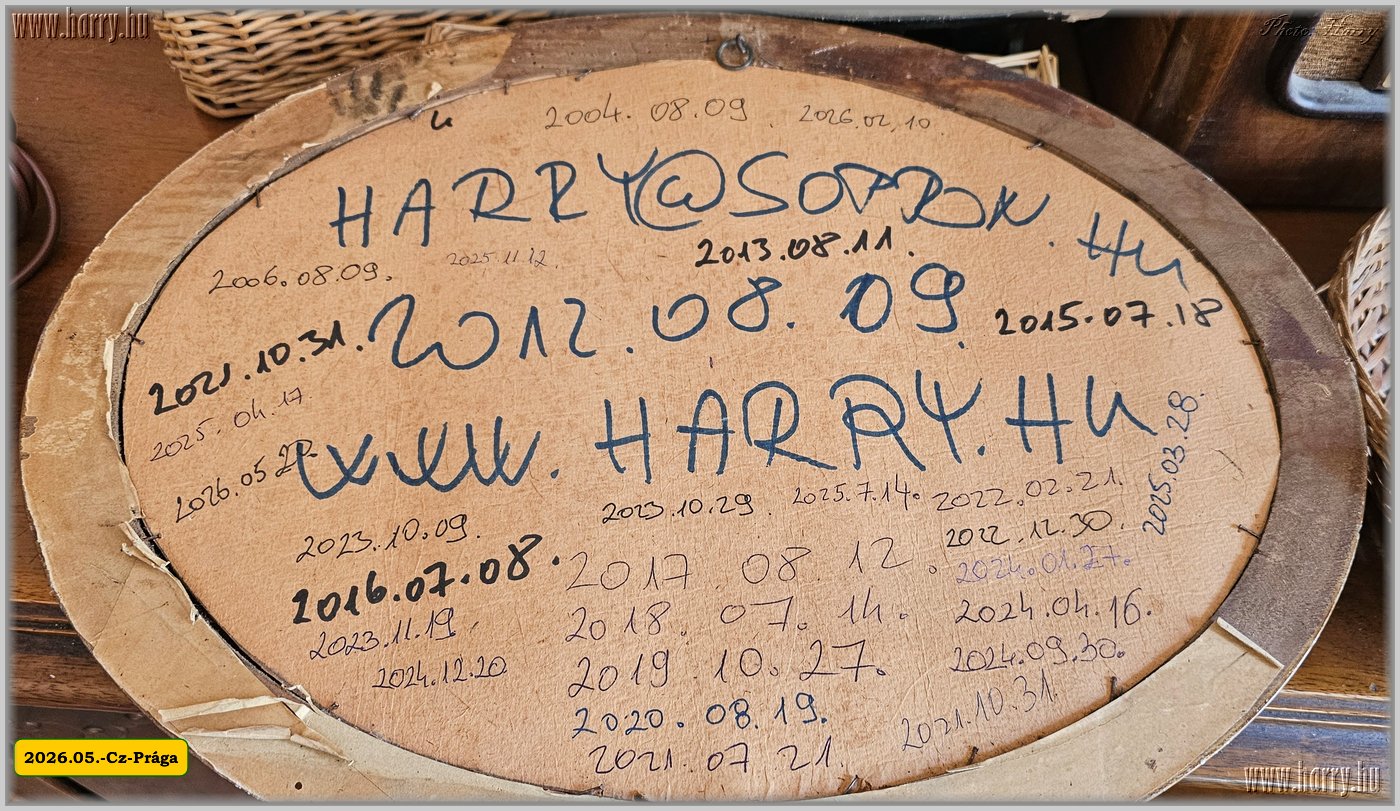 www.harry.hu
Photo: Harry
2004. 08. 09
2026.02.10.
HARRY@SOPRON.HU
2006.08.09.
2025.11.12.
2013.08.11.
2012.08.09.
2015.07.18
2021.10.31.
2025.04.17.
WWW.HARRY.HU
2025.03.28.
2026.05.20.
2023.10.29.
2025.7.14.
2022.02.21.
2023.10.09.
2022.12.30.
2016.07.08.
2017.08.12.
2024.01.27.
2023.11.19.
2018.07.14.
2024.04.16.
2024.12.20
2019 10.27.
2024.09.30.
2020.08.19.
2021.10.31.
2021.07 21.
2026.05.-Cz-Prága
www.harry.hu